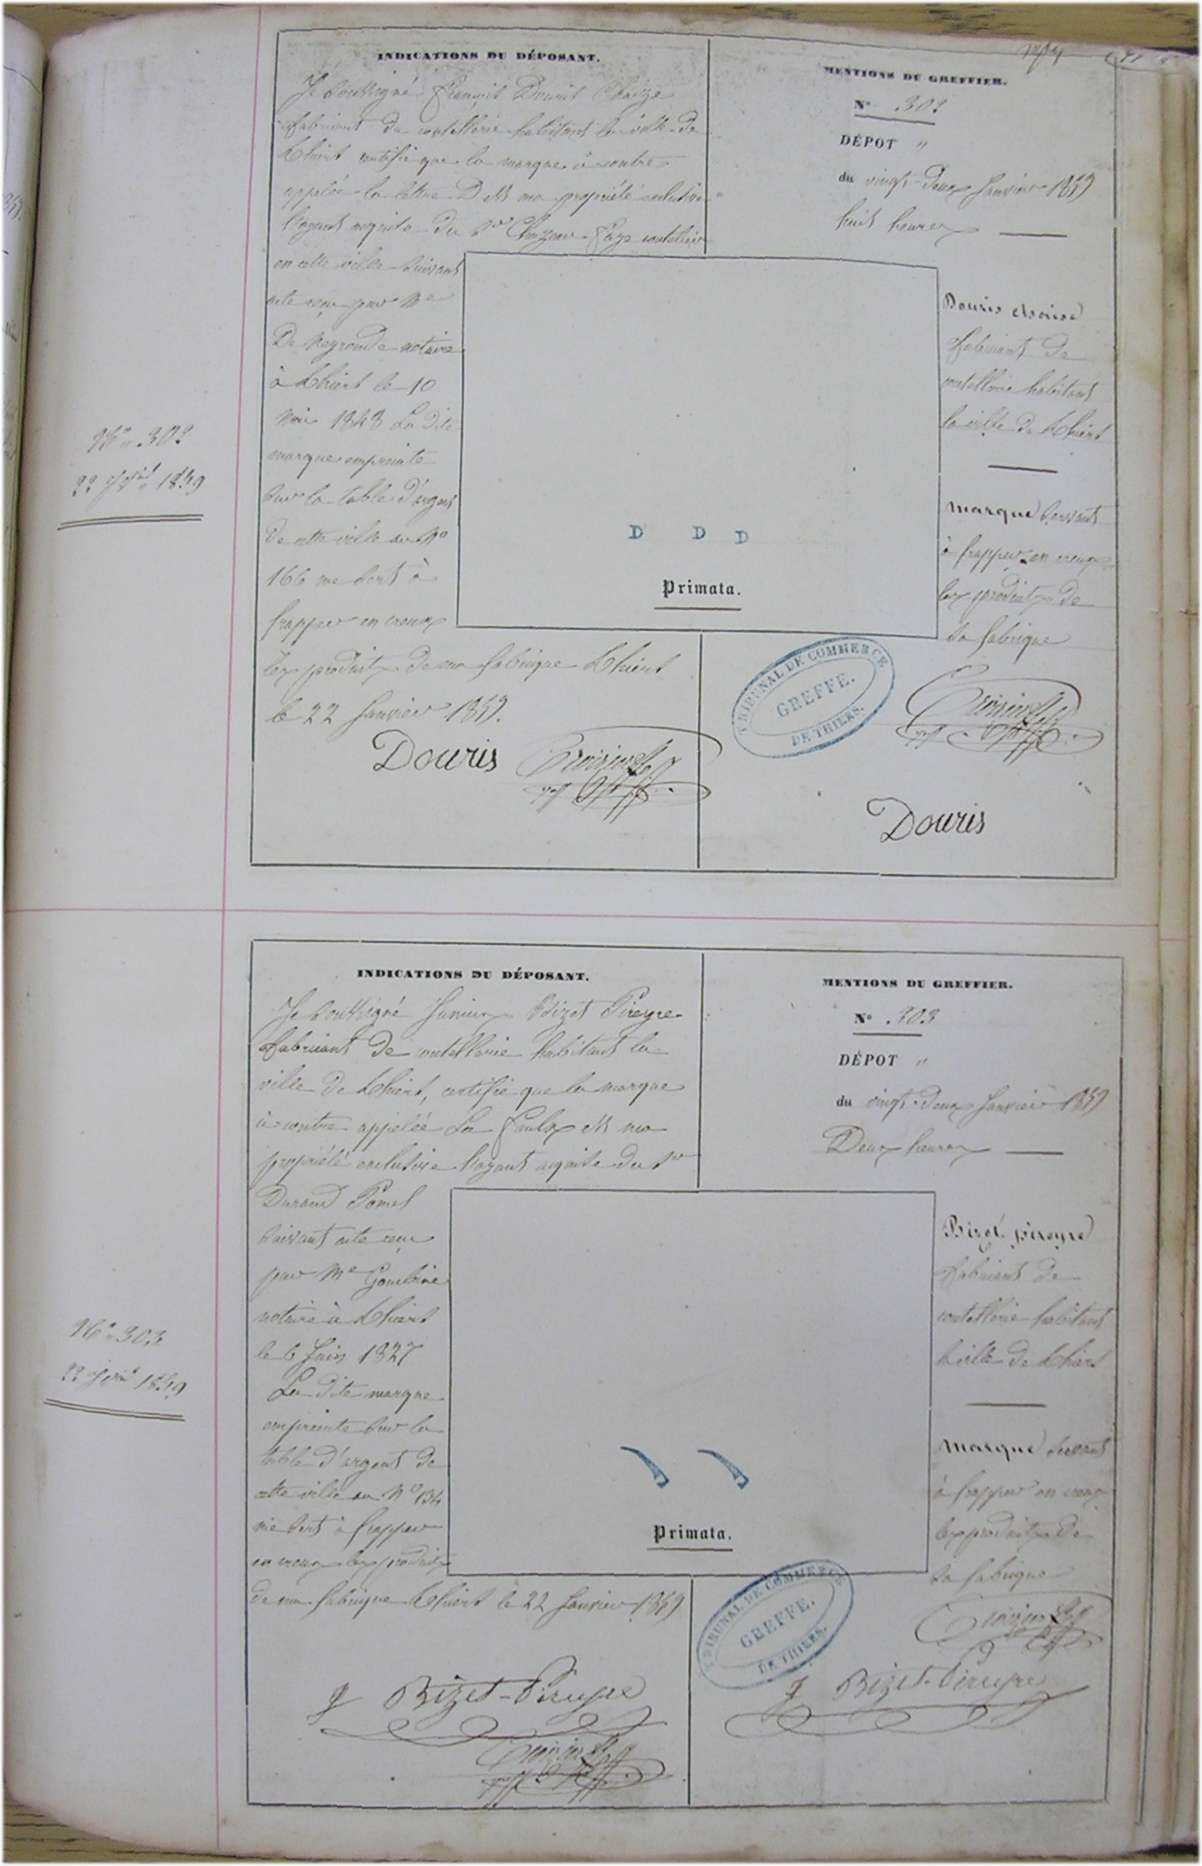 INDICATIONS DU DÉPOSANT.
Je soussigné François Douris Chaize
fabricant de coutellerie habitant la ville de
Thiers certifie que la marque ci contre
appelée la lettre D est ma propriété exclusive
l'ayant acquise du Sr Fays coutelier
en cette ville suivant
acte reçu par Me
De Negronde notaire
à Thiers le 10
1848 La dite
marque empreinte
sur la table d'argent
de cette ville au No
166 me sert à
frapper en creux
les produits de ma fabrique Thiers
le 22 Janvier 1859.
Douris
MENTIONS DU GREFFIER.
No 302
DÉPOT "
du vingt-deux Janvier 1859
huit heures
Douris chaize
fabricant de
coutellerie habitant
la ville de Thiers
marque servant
à frapper en creux
les produits de
sa fabrique
Douris
D D D
Primata.
TRIBUNAL DE COMMERCE
GREFFE.
DE THIERS.
No 302
22 Jver 1859
INDICATIONS DU DÉPOSANT.
Je soussigné Bizet Pireyre
fabricant de coutellerie habitant la
ville de Thiers, certifie que la marque
ci contre appelée La Faulx est ma
propriété exclusive l'ayant acquise du Sr
Durand Pomel
suivant acte reçu
par Me
notaire à Thiers
le 6 Juin 1827
La dite marque
empreinte sur la
table d'argent de
cette ville au No 134
me sert à frapper
en creux les produits
de ma fabrique Thiers le 22 Janvier 1859
J Bizet-Pireyre
MENTIONS DU GREFFIER.
No 303
DÉPOT "
du vingt-deux Janvier 1859
Deux heures
Bizet pireyre
fabricant de
coutellerie habitant
la ville de Thiers
marque servant
à frapper en creux
les produits de
sa fabrique
J Bizet-Pireyre
Primata.
TRIBUNAL DE COMMERCE
GREFFE.
DE THIERS.
No 303
22 Jver 1859